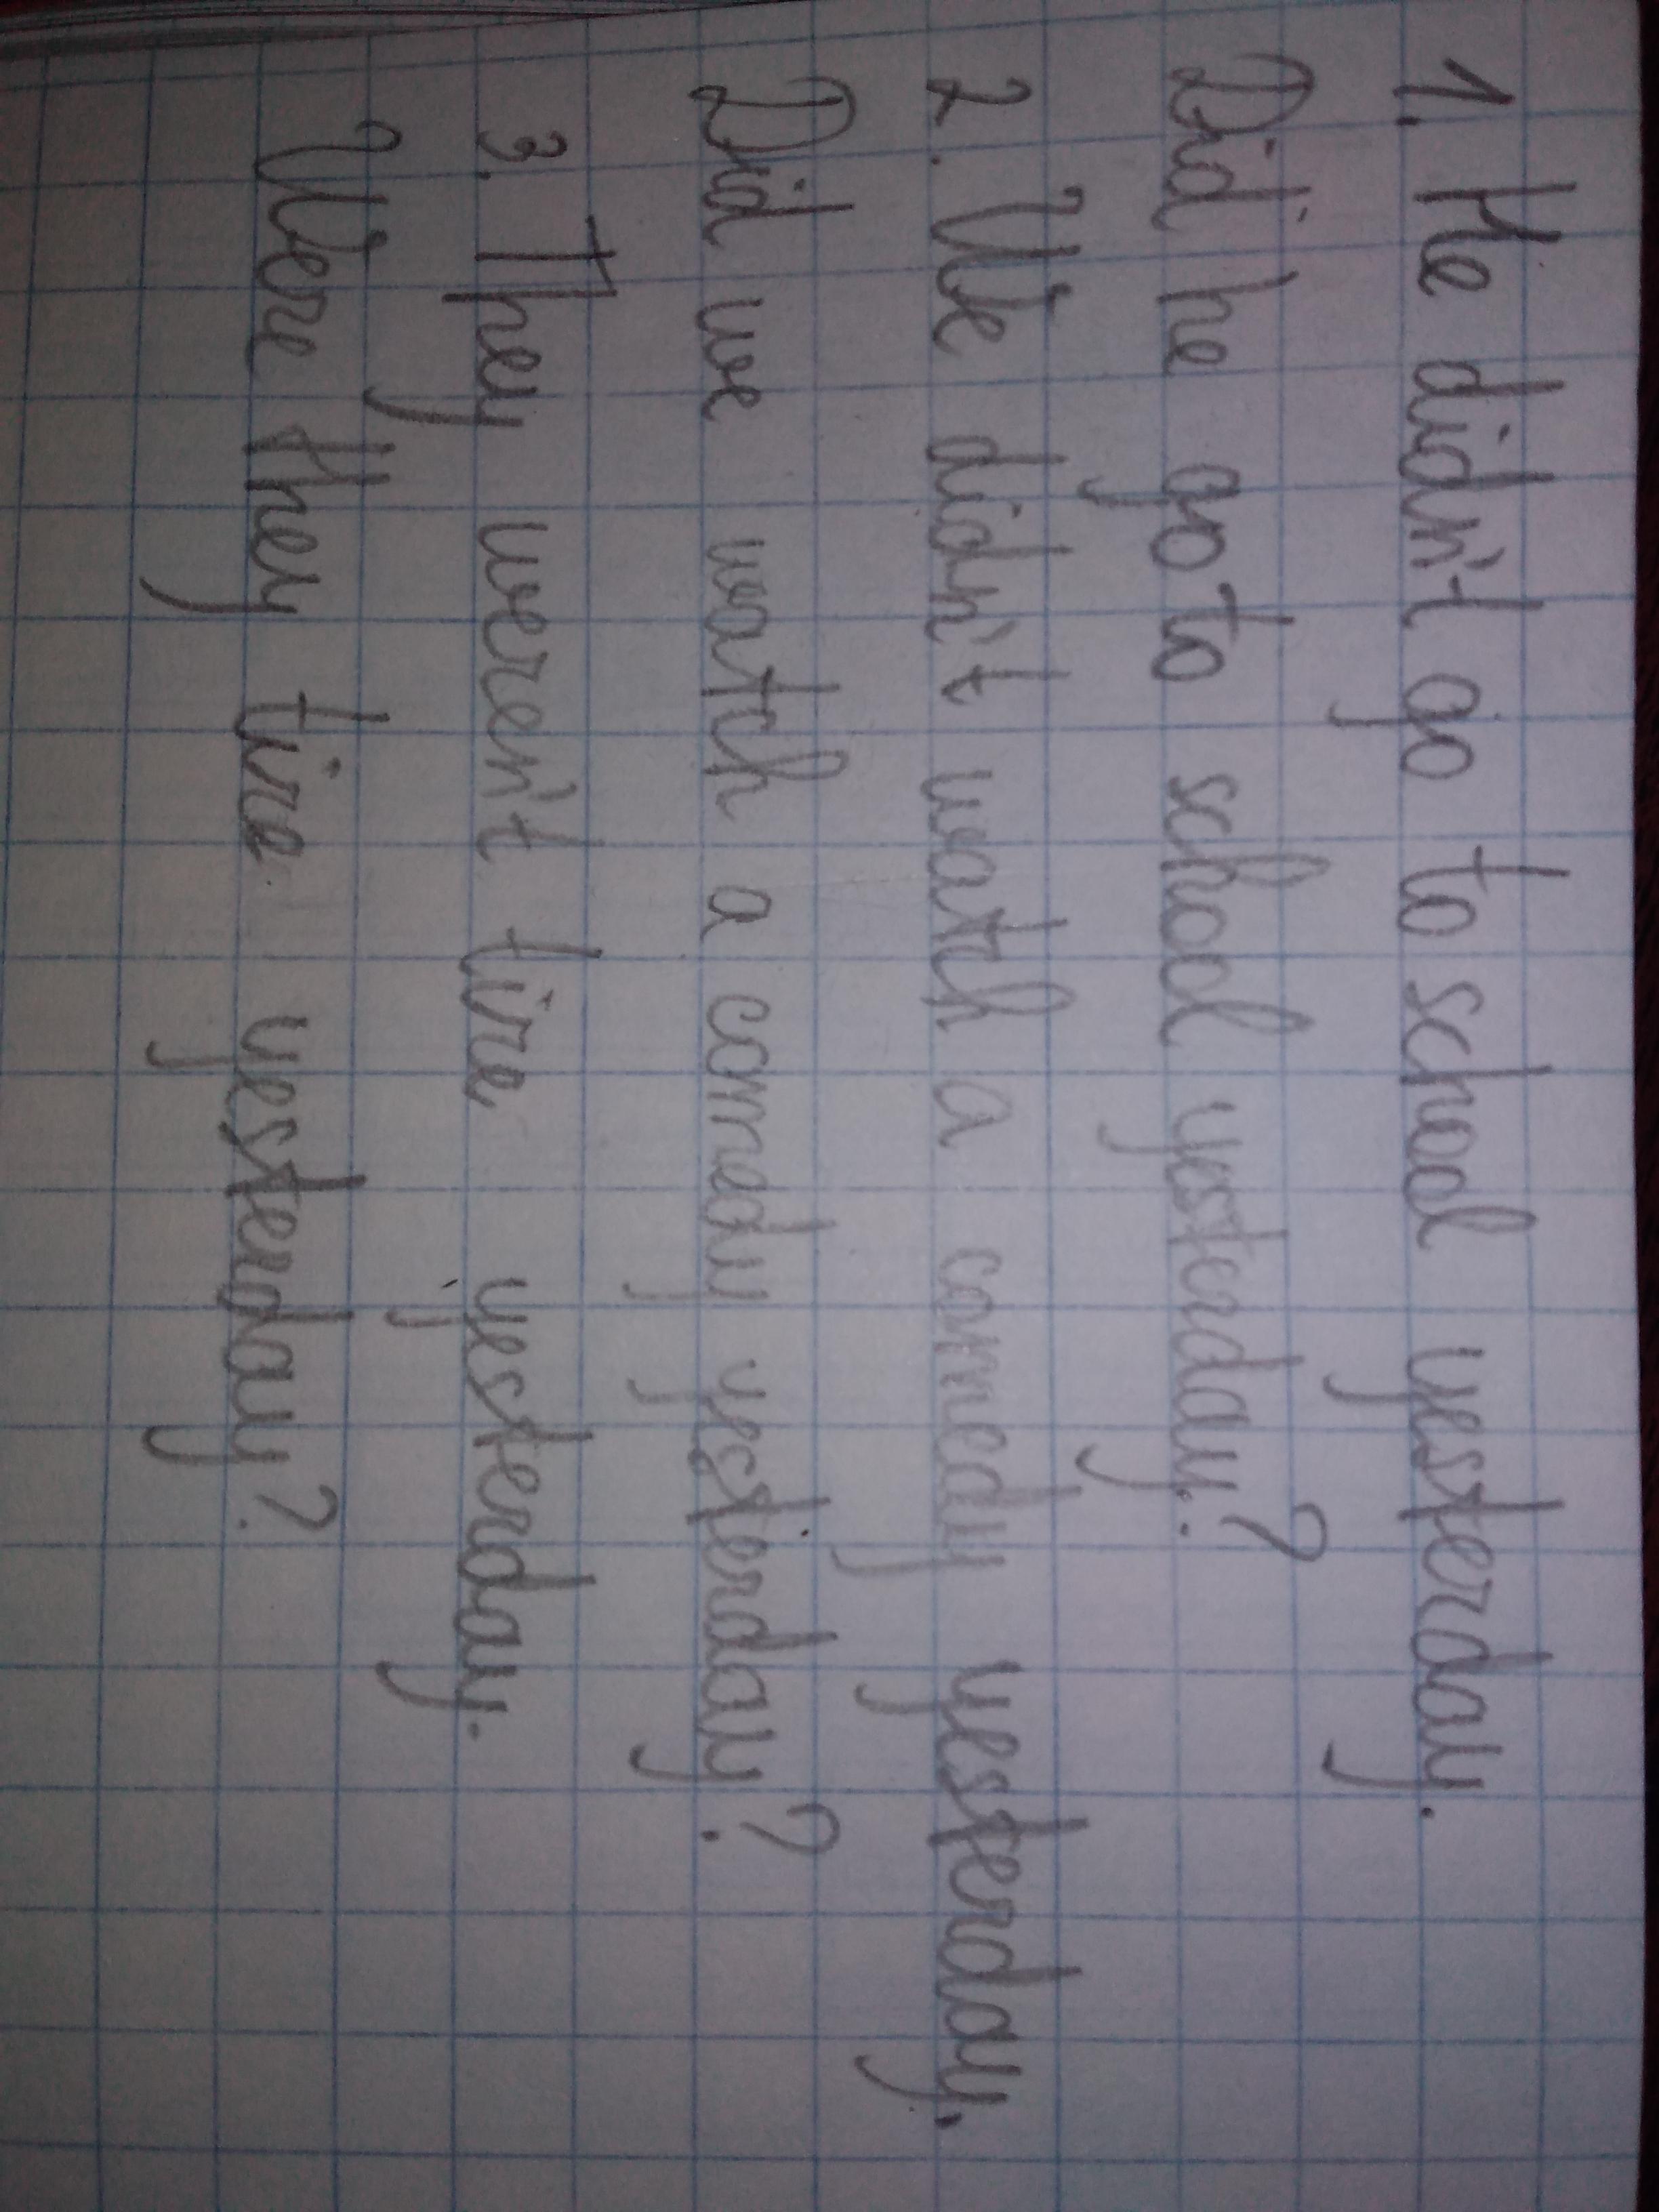 1. He didn't go to school yesterday.
Did he go to school yesterday?
2. We didn't watch a comedy yesterday.
Did we watch a comedy yesterday?
3. They weren't tire yesterday.
Were they tire yesterday?